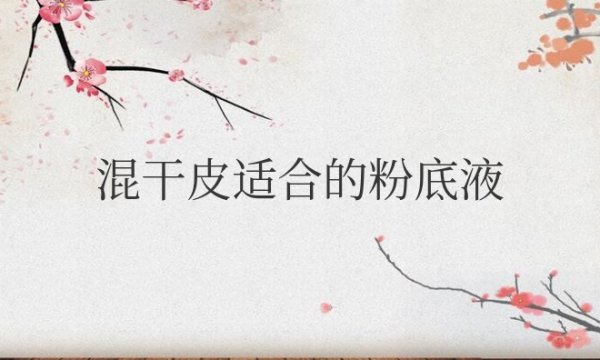 混干皮适合的粉底液